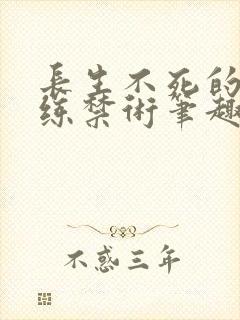 長生不死的
练禁術笔趣
不惑三年